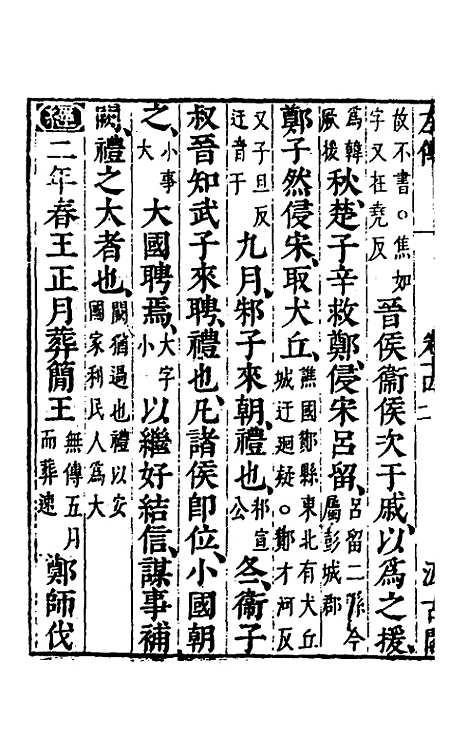 左傳 卷十四 二 汲古閣
故不書○焦如字又在堯反晉侯衞侯次于戚、以爲之援、
爲韓厥援秋、楚子辛救鄭、侵宋呂留、呂留二縣今屬彭城郡
鄭子然侵宋、取犬丘、譙國酇縣東北有犬丘城迂廻疑○酇才河反
又子旦反迂音于九月、邾子來朝、禮也、邾宣公冬、衞子
叔晉知武子來聘、禮也、凡諸侯卽位、小國朝
之、小事大大國聘焉、大字小以繼好結信、謀事補
闕、禮之大者也、闕猶過也禮以安國家利民人爲大
經二年春王正月葬簡王無傳五月而葬速鄭師伐